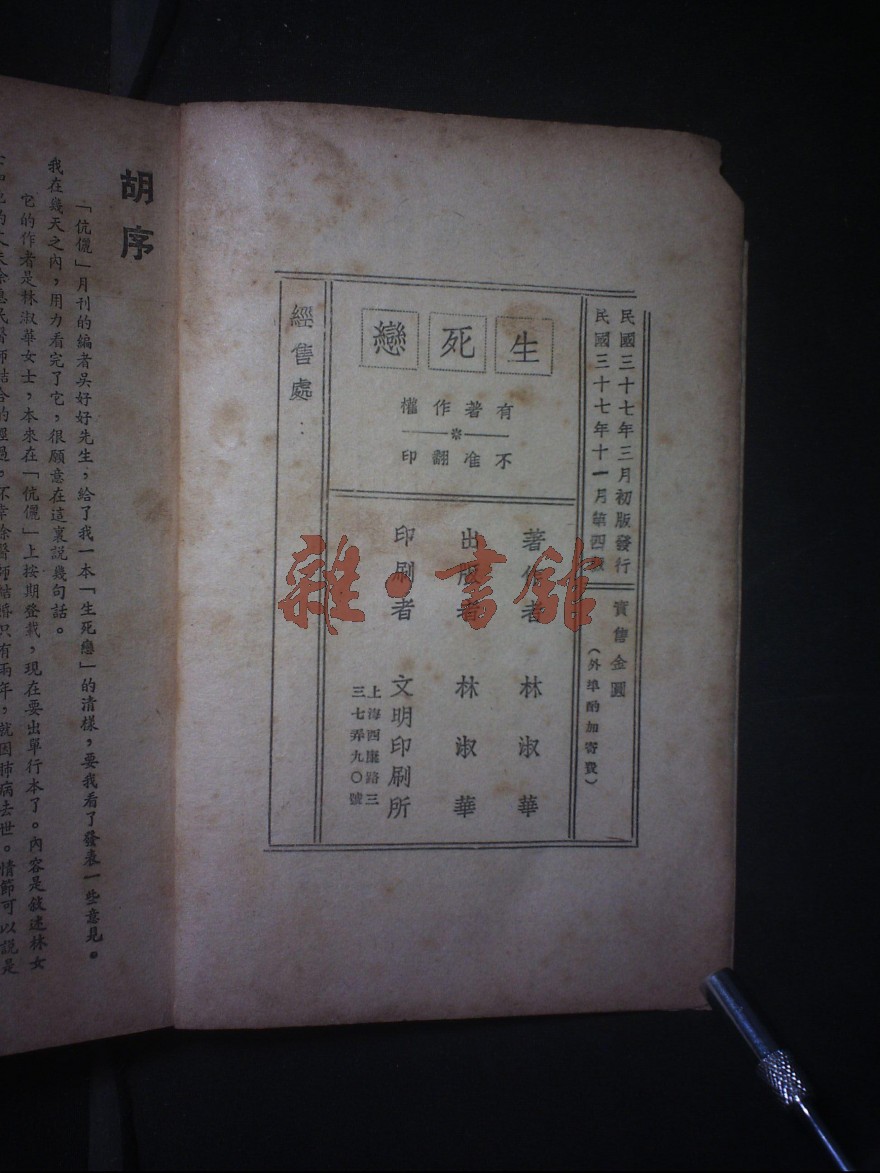 民國三十七年三月初版發行
民國三十七年十一月第四版
實售金圓
（外埠酌加寄費）
生死戀
有著作權
不准翻印
著作者　林淑華
出版者　林淑華
印刷者　文明印刷所
上海西康路三
三七弄九〇號
經售處：
雜·書館
胡序
「伉儷」月刊的編者吳好好先生，給了我一本「生死戀」的清樣，要我看了發表一些意見。
我在幾天之內，用力看完了它，很願意在這裏說幾句話。
它的作者是林淑華女士，本來在「伉儷」上按期登載，現在要出單行本了。內容是敍述林女
醫師結合的經過，不幸余醫師結婚只有兩年，就因肺病去世。情節可以說是